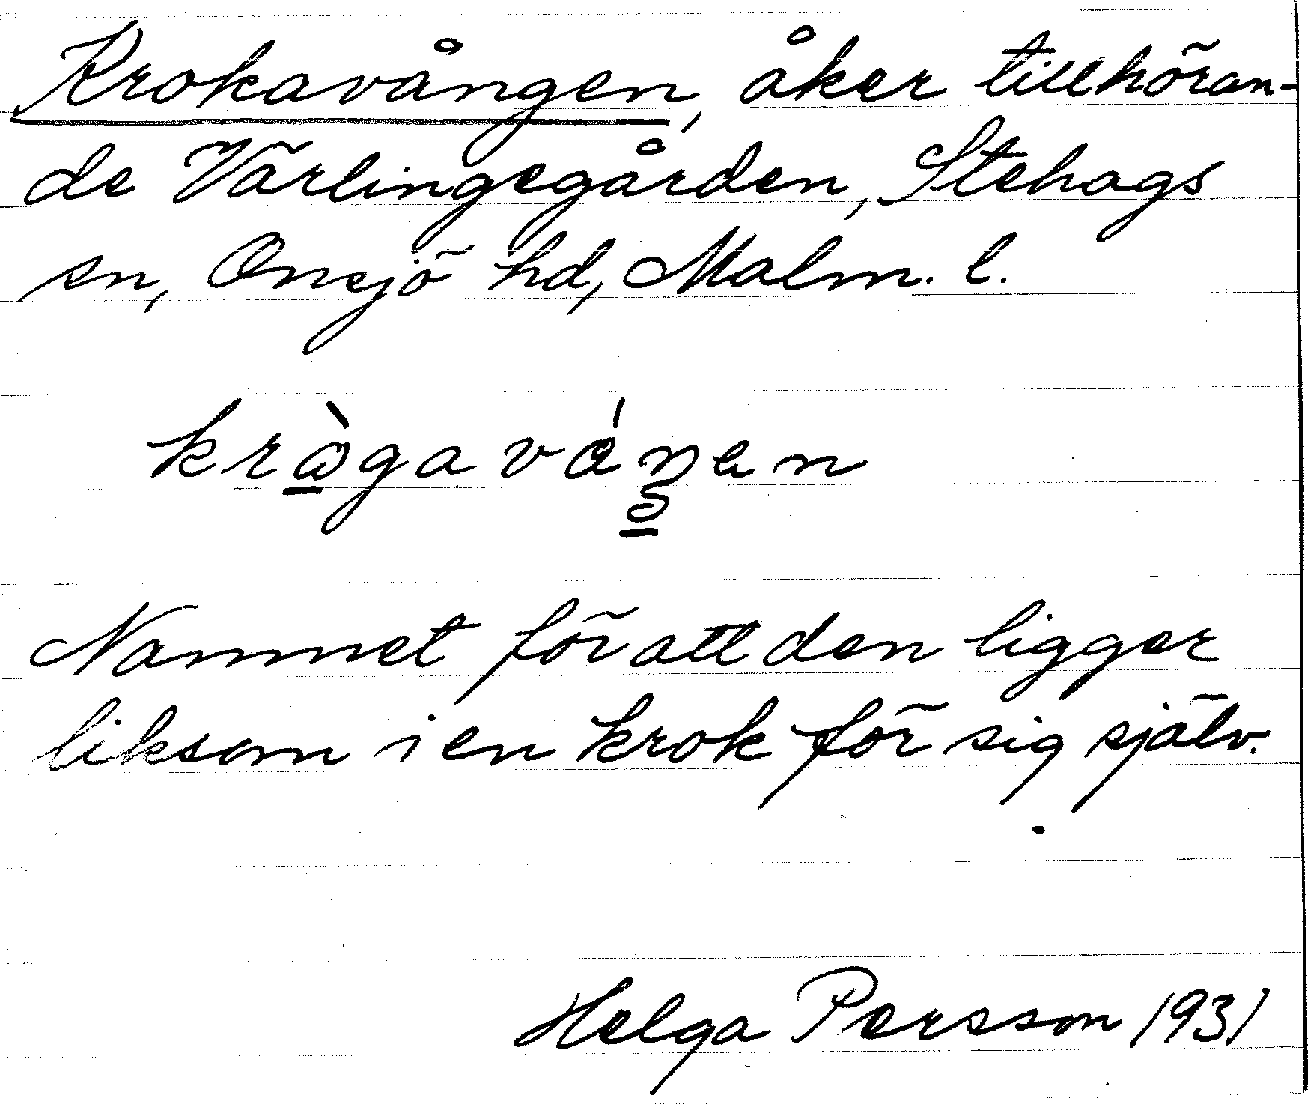 Krokavången, åker tillhöran-
de Värlingegården, Stehags
sn, Onsjö hd, Malm. l.
Namnet för att den ligger
liksom i en krok för sig själv.
Helga Persson 1931